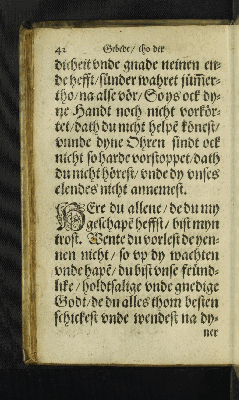 42 Gebede / tho der
dicheit vnde gnade neinen en-
de hefft / sünder wahret jümmer-
tho / na alse vör / So ys ock dy-
ne Handt noch nicht vorkör-
tet / dath du nicht helpē könest /
vnnde dyne Ohren sindt ock
nicht so harde vorstoppet / dath
du nicht hörest / vnde dy vnses
elendes nicht annemest.
HEre du allene / de du my
geschapē heffst / bist myn
trost. Wente du vorlest de yen-
nen nicht / so vp dy wachten
vnde hapē / du bist vnse fründ-
like / holdtsalige vnde gnedige
Godt / de du alles thom besten
schickest vnde wendest na dy-
ner